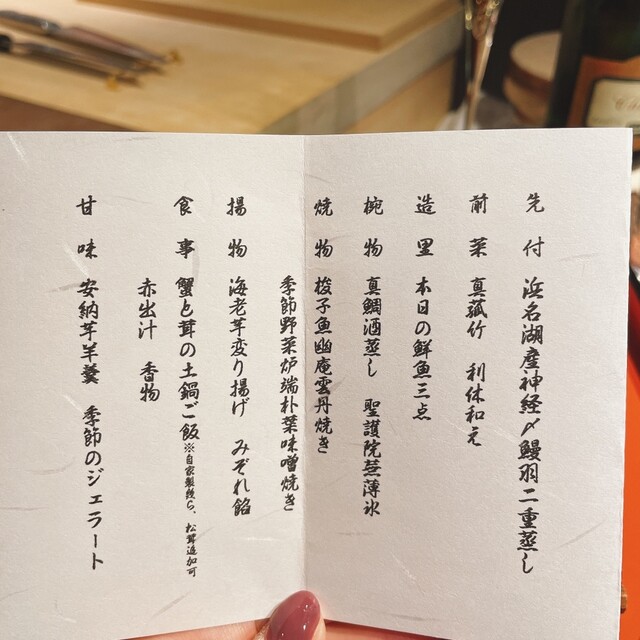 先付 浜名湖産神経〆鰻羽二重蒸し
前菜 真菰竹 利休和え
造里 本日の鮮魚三点
椀物 真鯛酒蒸し 聖護院蕪薄氷
焼物 梭子魚幽庵雲丹焼き
季節野菜炉端朴葉味噌焼き
揚物 海老芋変り揚げ みぞれ餡
食事 蟹と茸の土鍋ご飯※自家製幾ら、松茸追加可
赤出汁 香物
甘味 安納芋羊羹 季節のジェラート